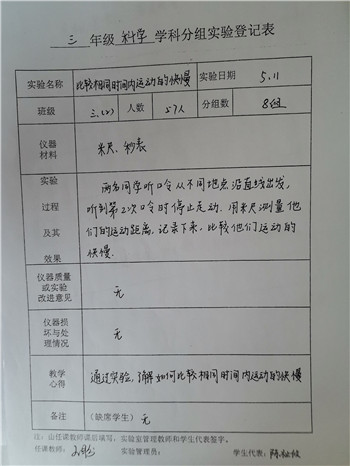 三 年级 科学 学科分组实验登记表
实验名称 比较相同时间内运动的快慢 实验日期 5.11
班级 三.(2) 人数 57人 分组数 8组
仪器材料 米尺、秒表
实验过程及其效果
两名同学听口令从不同地点沿直线出发,
听到第2次口令时停止走动.用米尺测量他
们的运动距离,记录下来,比较他们运动的
快慢.
仪器质量或实验改进意见 无
仪器损坏与处理情况 无
教学心得 通过实验,了解如何比较相同时间内运动的快慢
备注 (缺席学生) 无
注:由任课教师课后填写,实验室管理教师和学生代表签字。
任课教师: 实验室管理员: 学生代表: